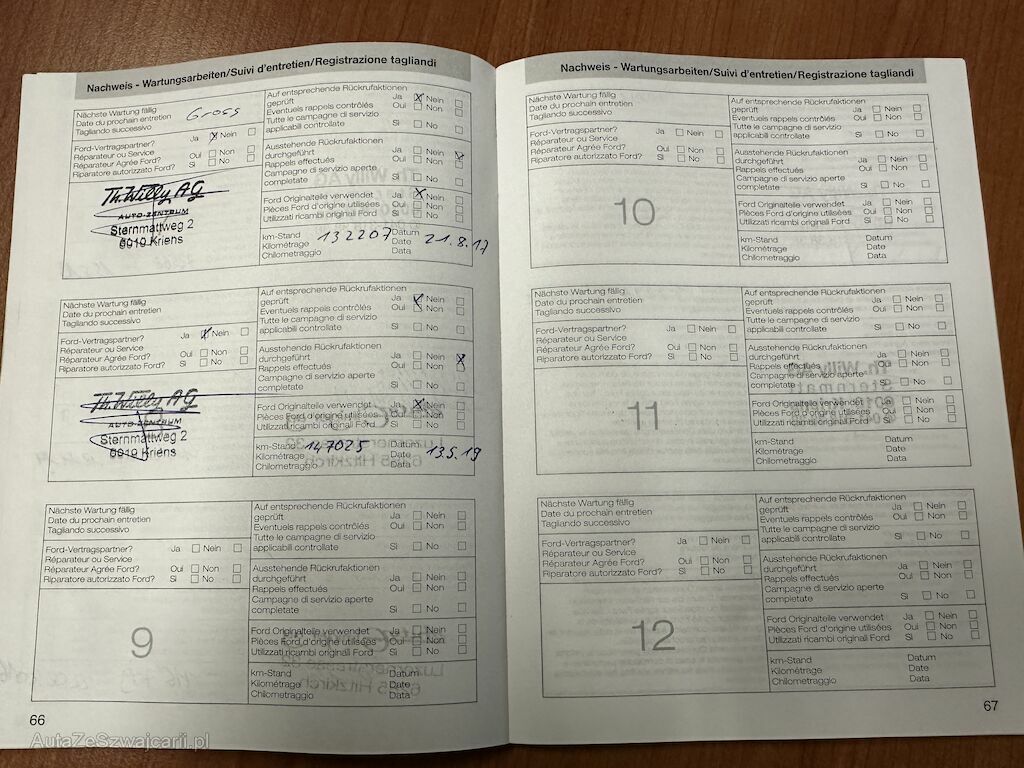 Nachweis - Wartungsarbeiten/Suivi d'entretien/Registrazione tagliandi
Nächste Wartung fällig
Date du prochain entretien
Tagliando successivo
Gross
Ford-Vertragspartner? Ja Nein
Réparateur ou Service
Réparateur Agrée Ford? Oui Non
Riparatore autorizzato Ford? Sì No
Th. Willy AG
AUTO-ZENTRUM
Sternmattweg 2
6010 Kriens
Auf entsprechende Rückrufaktionen
geprüft Ja Nein
Eventuels rappels contrôlés Oui Non
Tutte le campagne di servizio
applicabili controllate Sì No
Ausstehende Rückrufaktionen
durchgeführt Ja Nein
Rappels effectués Oui Non
Campagne di servizio aperte
completate Sì No
Ford Originalteile verwendet Ja Nein
Pièces Ford d'origine utilisées Oui Non
Utilizzati ricambi originali Ford Sì No
km-Stand 132207 Datum 21.8.17
Kilométrage Date
Chilometraggio Data
Nächste Wartung fällig
Date du prochain entretien
Tagliando successivo
Ford-Vertragspartner? Ja Nein
Réparateur ou Service
Réparateur Agrée Ford? Oui Non
Riparatore autorizzato Ford? Sì No
Th. Willy AG
AUTO-ZENTRUM
Sternmattweg 2
6010 Kriens
Auf entsprechende Rückrufaktionen
geprüft Ja Nein
Eventuels rappels contrôlés Oui Non
Tutte le campagne di servizio
applicabili controllate Sì No
Ausstehende Rückrufaktionen
durchgeführt Ja Nein
Rappels effectués Oui Non
Campagne di servizio aperte
completate Sì No
Ford Originalteile verwendet Ja Nein
Pièces Ford d'origine utilisées Oui Non
Utilizzati ricambi originali Ford Sì No
km-Stand 147025 Datum 13.5.19
Kilométrage Date
Chilometraggio Data
Nächste Wartung fällig
Date du prochain entretien
Tagliando successivo
Ford-Vertragspartner? Ja Nein
Réparateur ou Service
Réparateur Agrée Ford? Oui Non
Riparatore autorizzato Ford? Sì No
9
Auf entsprechende Rückrufaktionen
geprüft Ja Nein
Eventuels rappels contrôlés Oui Non
Tutte le campagne di servizio
applicabili controllate Sì No
Ausstehende Rückrufaktionen
durchgeführt Ja Nein
Rappels effectués Oui Non
Campagne di servizio aperte
completate Sì No
Ford Originalteile verwendet Ja Nein
Pièces Ford d'origine utilisées Oui Non
Utilizzati ricambi originali Ford Sì No
km-Stand Datum
Kilométrage Date
Chilometraggio Data
66
AutaZeSzwajcarii.pl
Nachweis - Wartungsarbeiten/Suivi d'entretien/Registrazione tagliandi
Nächste Wartung fällig
Date du prochain entretien
Tagliando successivo
Ford-Vertragspartner? Ja Nein
Réparateur ou Service
Réparateur Agrée Ford? Oui Non
Riparatore autorizzato Ford? Sì No
10
Auf entsprechende Rückrufaktionen
geprüft Ja Nein
Eventuels rappels contrôlés Oui Non
Tutte le campagne di servizio
applicabili controllate Sì No
Ausstehende Rückrufaktionen
durchgeführt Ja Nein
Rappels effectués Oui Non
Campagne di servizio aperte
completate Sì No
Ford Originalteile verwendet Ja Nein
Pièces Ford d'origine utilisées Oui Non
Utilizzati ricambi originali Ford Sì No
km-Stand Datum
Kilométrage Date
Chilometraggio Data
Nächste Wartung fällig
Date du prochain entretien
Tagliando successivo
Ford-Vertragspartner? Ja Nein
Réparateur ou Service
Réparateur Agrée Ford? Oui Non
Riparatore autorizzato Ford? Sì No
11
Auf entsprechende Rückrufaktionen
geprüft Ja Nein
Eventuels rappels contrôlés Oui Non
Tutte le campagne di servizio
applicabili controllate Sì No
Ausstehende Rückrufaktionen
durchgeführt Ja Nein
Rappels effectués Oui Non
Campagne di servizio aperte
completate Sì No
Ford Originalteile verwendet Ja Nein
Pièces Ford d'origine utilisées Oui Non
Utilizzati ricambi originali Ford Sì No
km-Stand Datum
Kilométrage Date
Chilometraggio Data
Nächste Wartung fällig
Date du prochain entretien
Tagliando successivo
Ford-Vertragspartner? Ja Nein
Réparateur ou Service
Réparateur Agrée Ford? Oui Non
Riparatore autorizzato Ford? Sì No
12
Auf entsprechende Rückrufaktionen
geprüft Ja Nein
Eventuels rappels contrôlés Oui Non
Tutte le campagne di servizio
applicabili controllate Sì No
Ausstehende Rückrufaktionen
durchgeführt Ja Nein
Rappels effectués Oui Non
Campagne di servizio aperte
completate Sì No
Ford Originalteile verwendet Ja Nein
Pièces Ford d'origine utilisées Oui Non
Utilizzati ricambi originali Ford Sì No
km-Stand Datum
Kilométrage Date
Chilometraggio Data
67